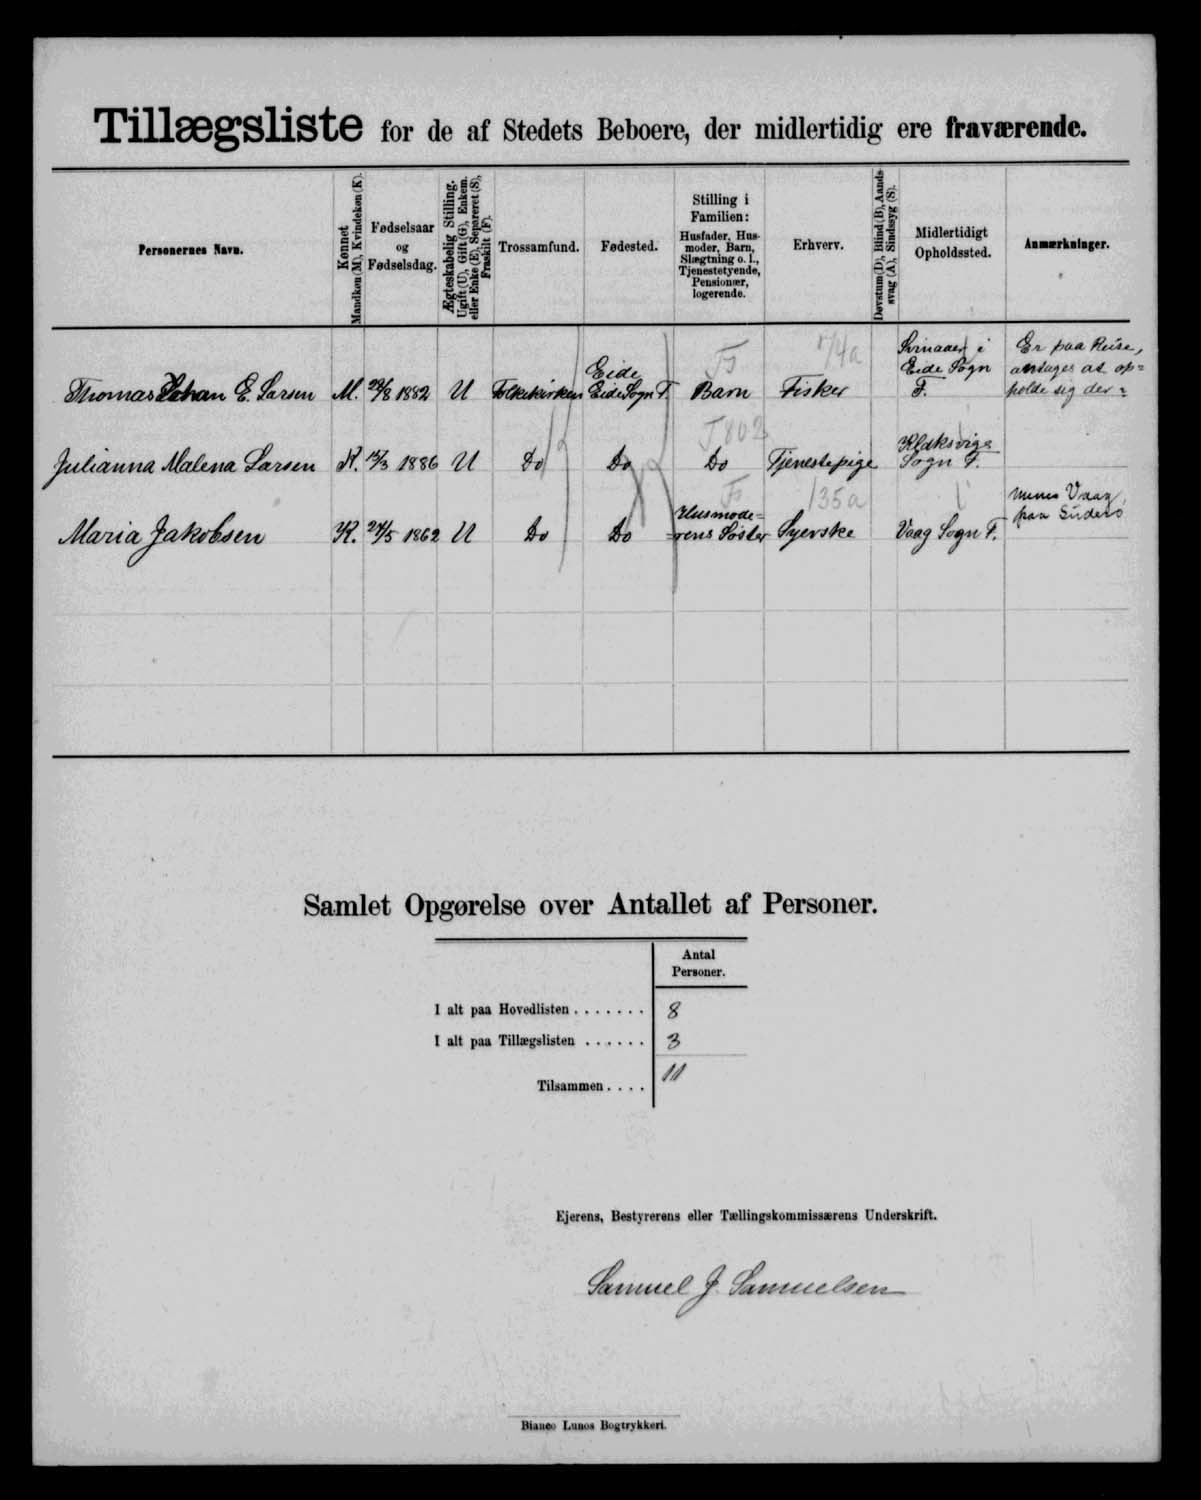 Tillægsliste for de af Stedets Beboere, der midlertidig ere fraværende.
Personernes Navn.
Kønnet
Mandkøn (M), Kvindekøn (K).
Fødselsaar
og
Fødselsdag.
Ægteskabelig Stilling.
Ugift (U), Gift (G), Enkem.
eller Enke (E), Separeret (S),
Fraskilt (F).
Trossamfund.
Fødested.
Stilling i
Familien:
Husfader, Hus-
moder, Barn,
Slægtning o. l.,
Tjenestetyende,
Pensionær,
logerende.
Erhverv.
Døvstum (D), Blind (B), Aands-
svag (A), Sindssyg (S).
Midlertidigt
Opholdssted.
Anmærkninger.
Thomas Johan E. Larsen M. 28/8 1882 U Folkekirken Eide
Eide Sogn F. Barn Fisker
Svinaaer i
Eide Sogn
F.
Er paa Reise,
antages at op=
holde sig der=
T 802
Julianna Malena Larsen K. 15/3 1886 U Do Do Do Tjenestepige
Klaksvigs
Sogn F.
135a
Maria Jakobsen K. 24/5 1862 U Do Do
Husmode=
rens Søster Syerske Vaag Sogn F.
menes Vaag
paa Suderø
Samlet Opgørelse over Antallet af Personer.
Antal
Personer.
I alt paa Hovedlisten . . . . . . . 8
I alt paa Tillægslisten . . . . . . 3
Tilsammen . . . . 11
Ejerens, Bestyrerens eller Tællingskommissærens Underskrift.
Samuel J. Samuelsen
Bianco Lunos Bogtrykkeri.